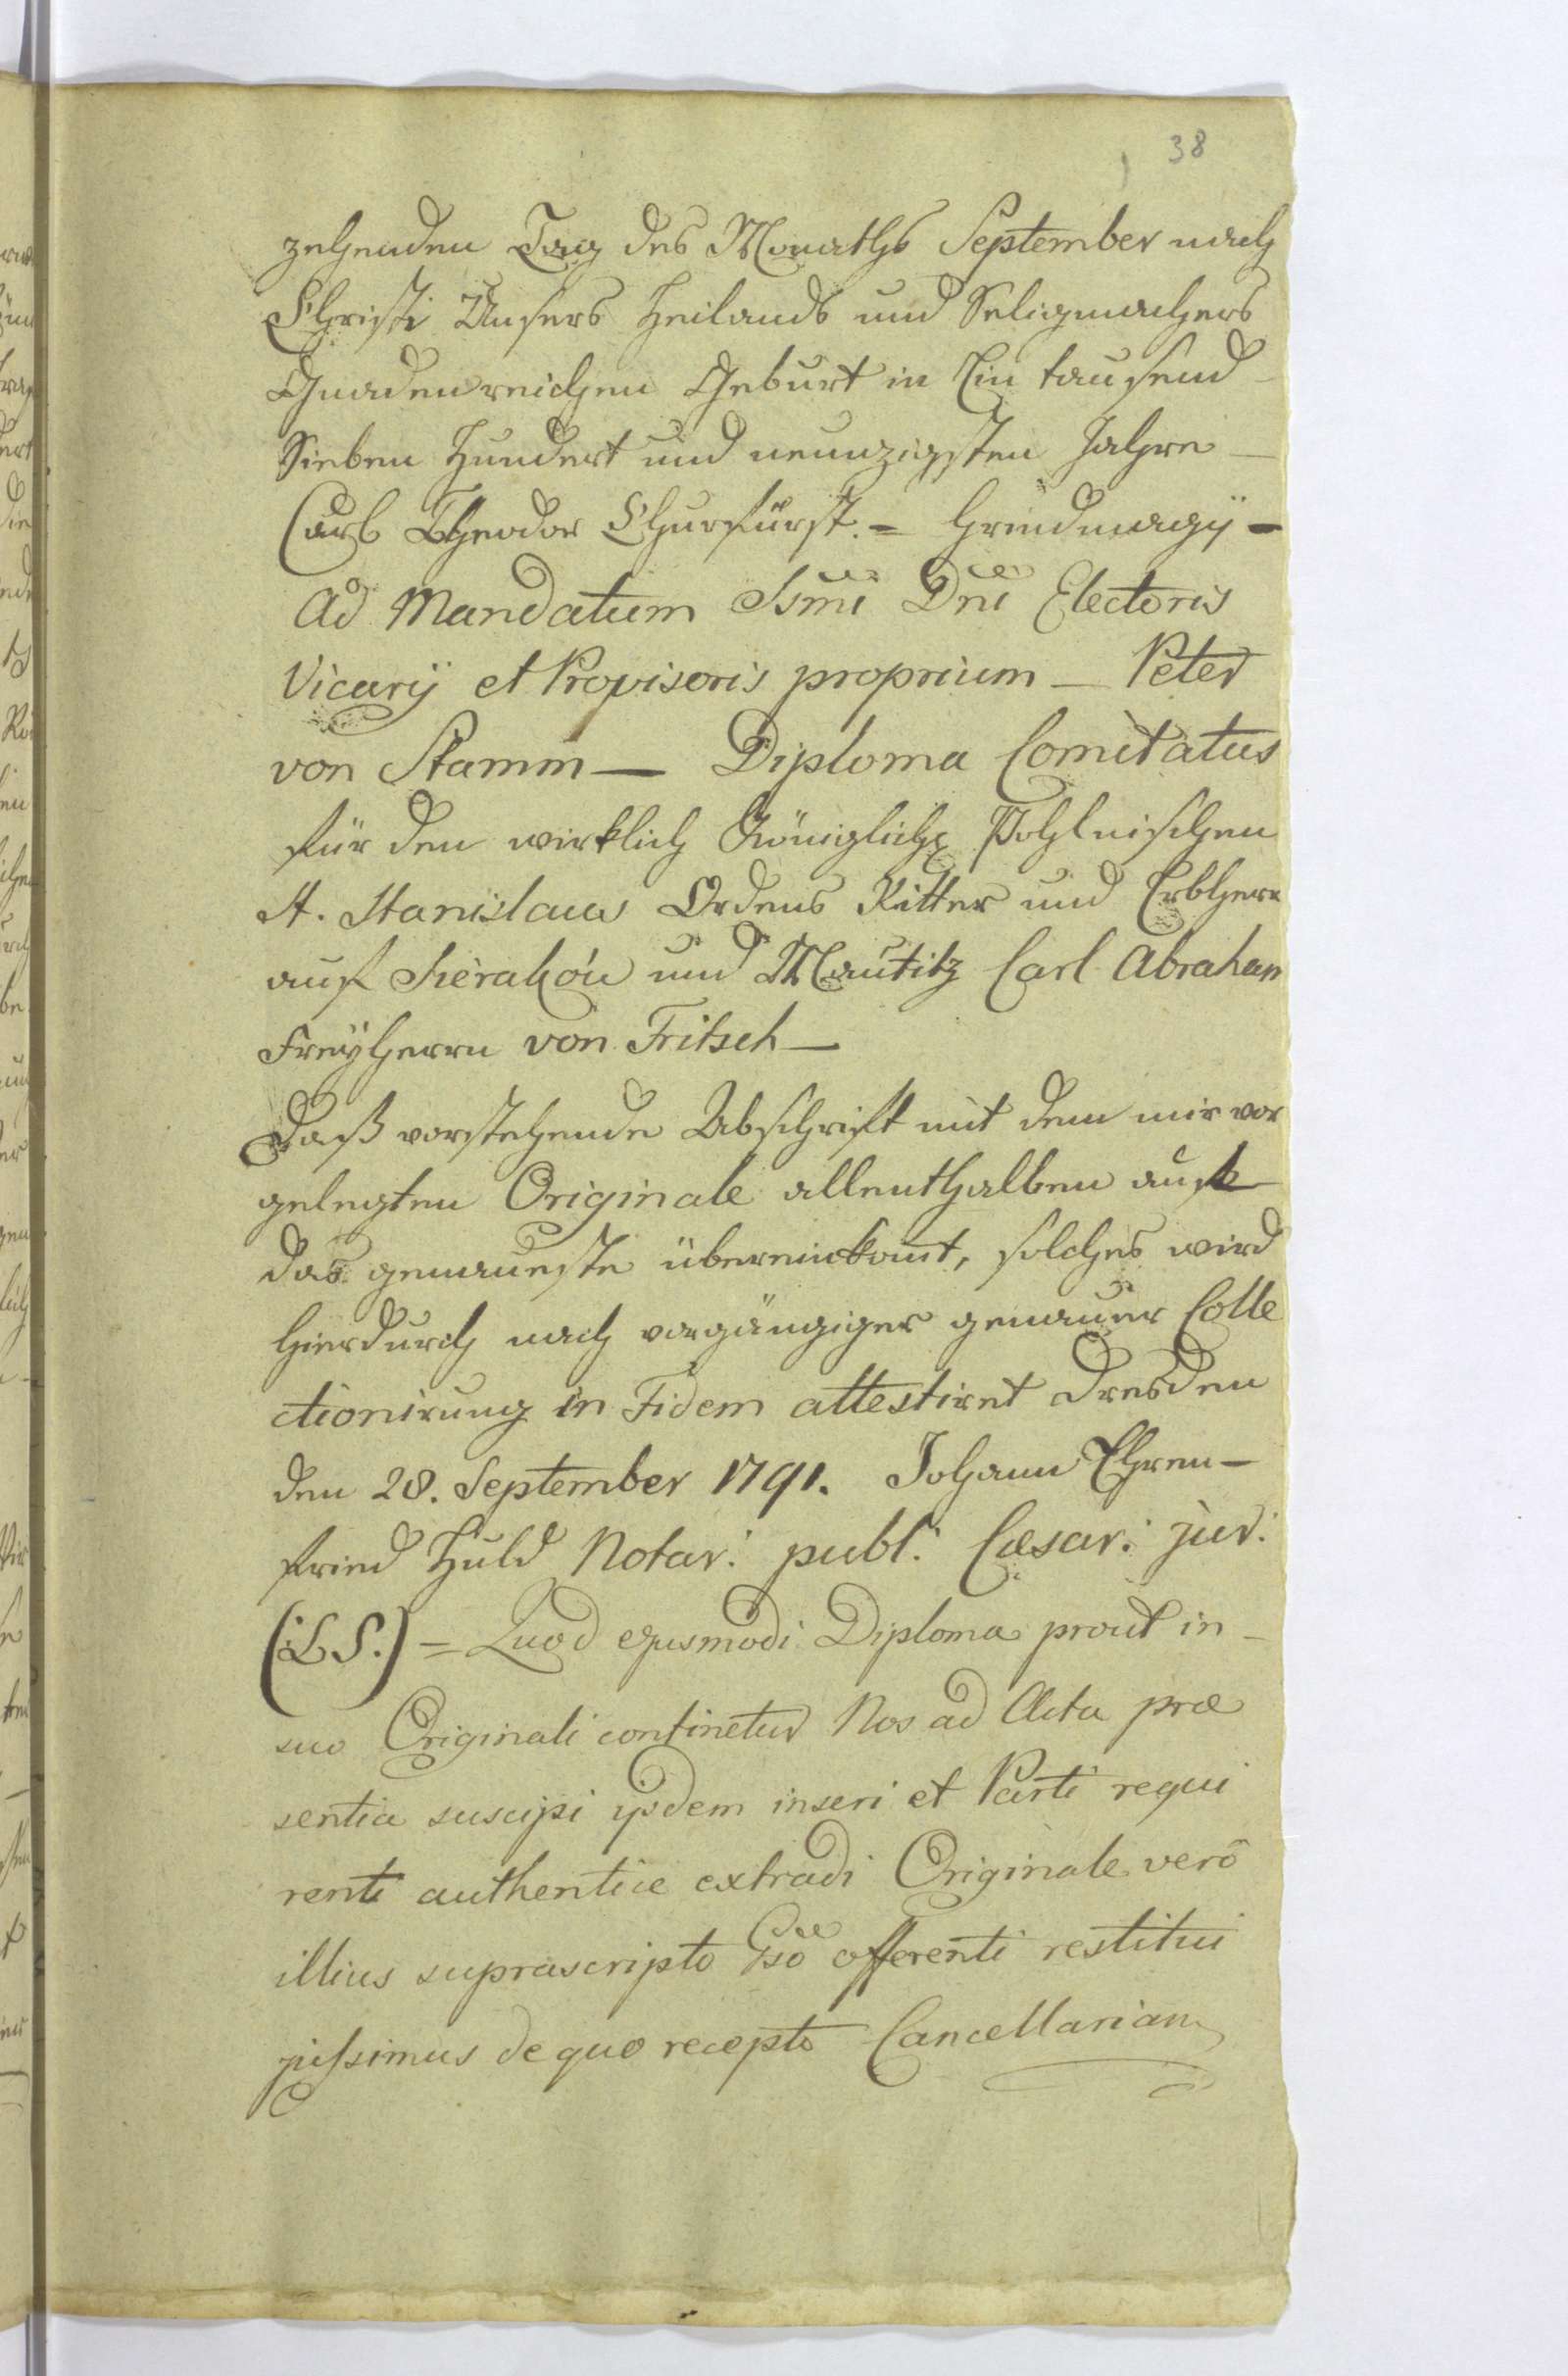 38
zehenden Tag des Monaths September nach
Christi Unsers Heilands und Seligmachers
Gnadenreichen Geburt in Ein tausend –
Sieben Hundert und neunzigsten Jahre –
Carl Theodor Churfürst. =
Ad Mandatum Ssmi Dni Electoris
Vicarÿ et Provisoris proprium – Peter
von Stamm – Diploma Comitatus
für den wirklich Königlich Pohlnischen
St. Stanislaus Ordens Ritter und Erbherr
auf und Mautitz Carl Abraham
Freÿherrn von Fritsch –
Daß vorstehende Abschrift mit dem mir vor
gelegten Originale allenthalben aufs
das genaueste übereinkomt, solches wird
hierdurch nach vorgängiger genauer Colle
ctionirung in Fidem attestiret Dresden
den 28. September 1791. Johann Ehren –
fried Huld Notar: publ: Cæsar: jur:
(:L S.) = Quod ejusmodi Diploma prout in –
suo Originali continetur Nos ad Acta præ
sentia suscipi ijsdem inseri et Parti requi
renti authentice extradi Originale verò
illius suprascripto Gso offerenti restitui
jussimus de quo recepto Cancellariam